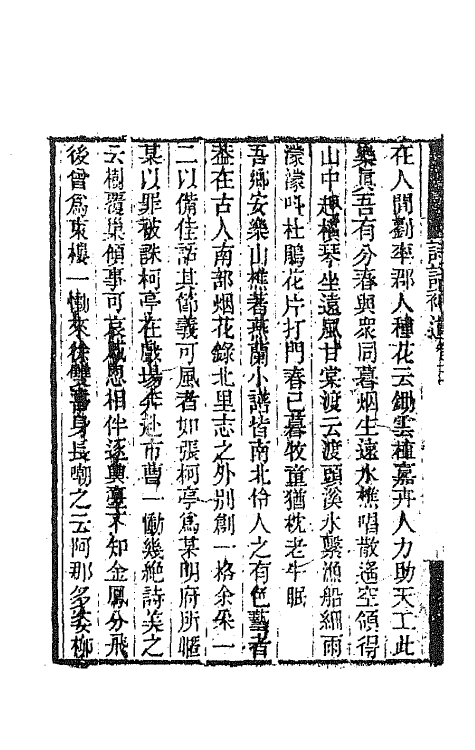 在人間劉奉郡人種花云鋤雲種嘉卉人力助天工此
樂眞吾有分春與衆同暮烟生遠水樵唱散遙空領得
山中趣橫琴坐遠風甘棠渡云渡頭溪水繫漁船細雨
濛濛叫杜鵑花片打門春已暮牧童猶枕老牛眠
吾鄉安樂山樵著燕蘭小譜皆南北伶人之有色藝者
蓋在古人南部烟花錄北里志之外别創一格余采一
二以備佳話其節義可風者如張柯亭爲某明府所暱
某以罪被誅柯亭在戲場奔赴市曹一慟幾絶詩美之
云樹覆巢傾事可哀感恩相伴逐輿臺不知金鳳分飛
後曾爲東樓一慟來徐雙喜身長嘲之云阿那多姿柳
詩話補遺卷三